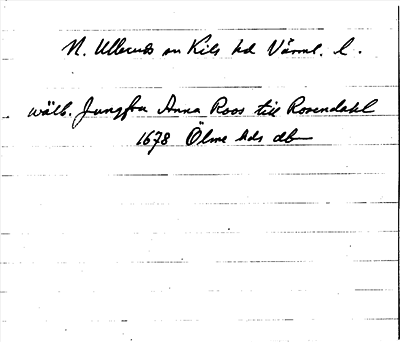 N. Ullerud sn Kils hd Värml. l.
wälb. Jungfru Anna Roos till Rosendahl
1678 Ölme hds db